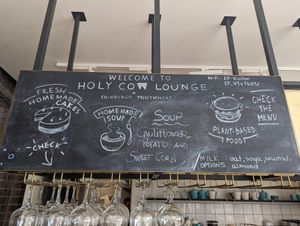 WELCOME TO
HOLY COW LOUNGE
EDINBURGH
WiFi: EP Visitor
FRESH
HOMEMADE
CAKES
CHECK
HOMEMADE
SOUP
SOUP
CAULIFLOWER
POTATO AND
SWEET CORN
PLANT-BASED
FOOD!
CHECK
THE
MENU
MILK
OPTIONS
oat, soya, coconut,
almond